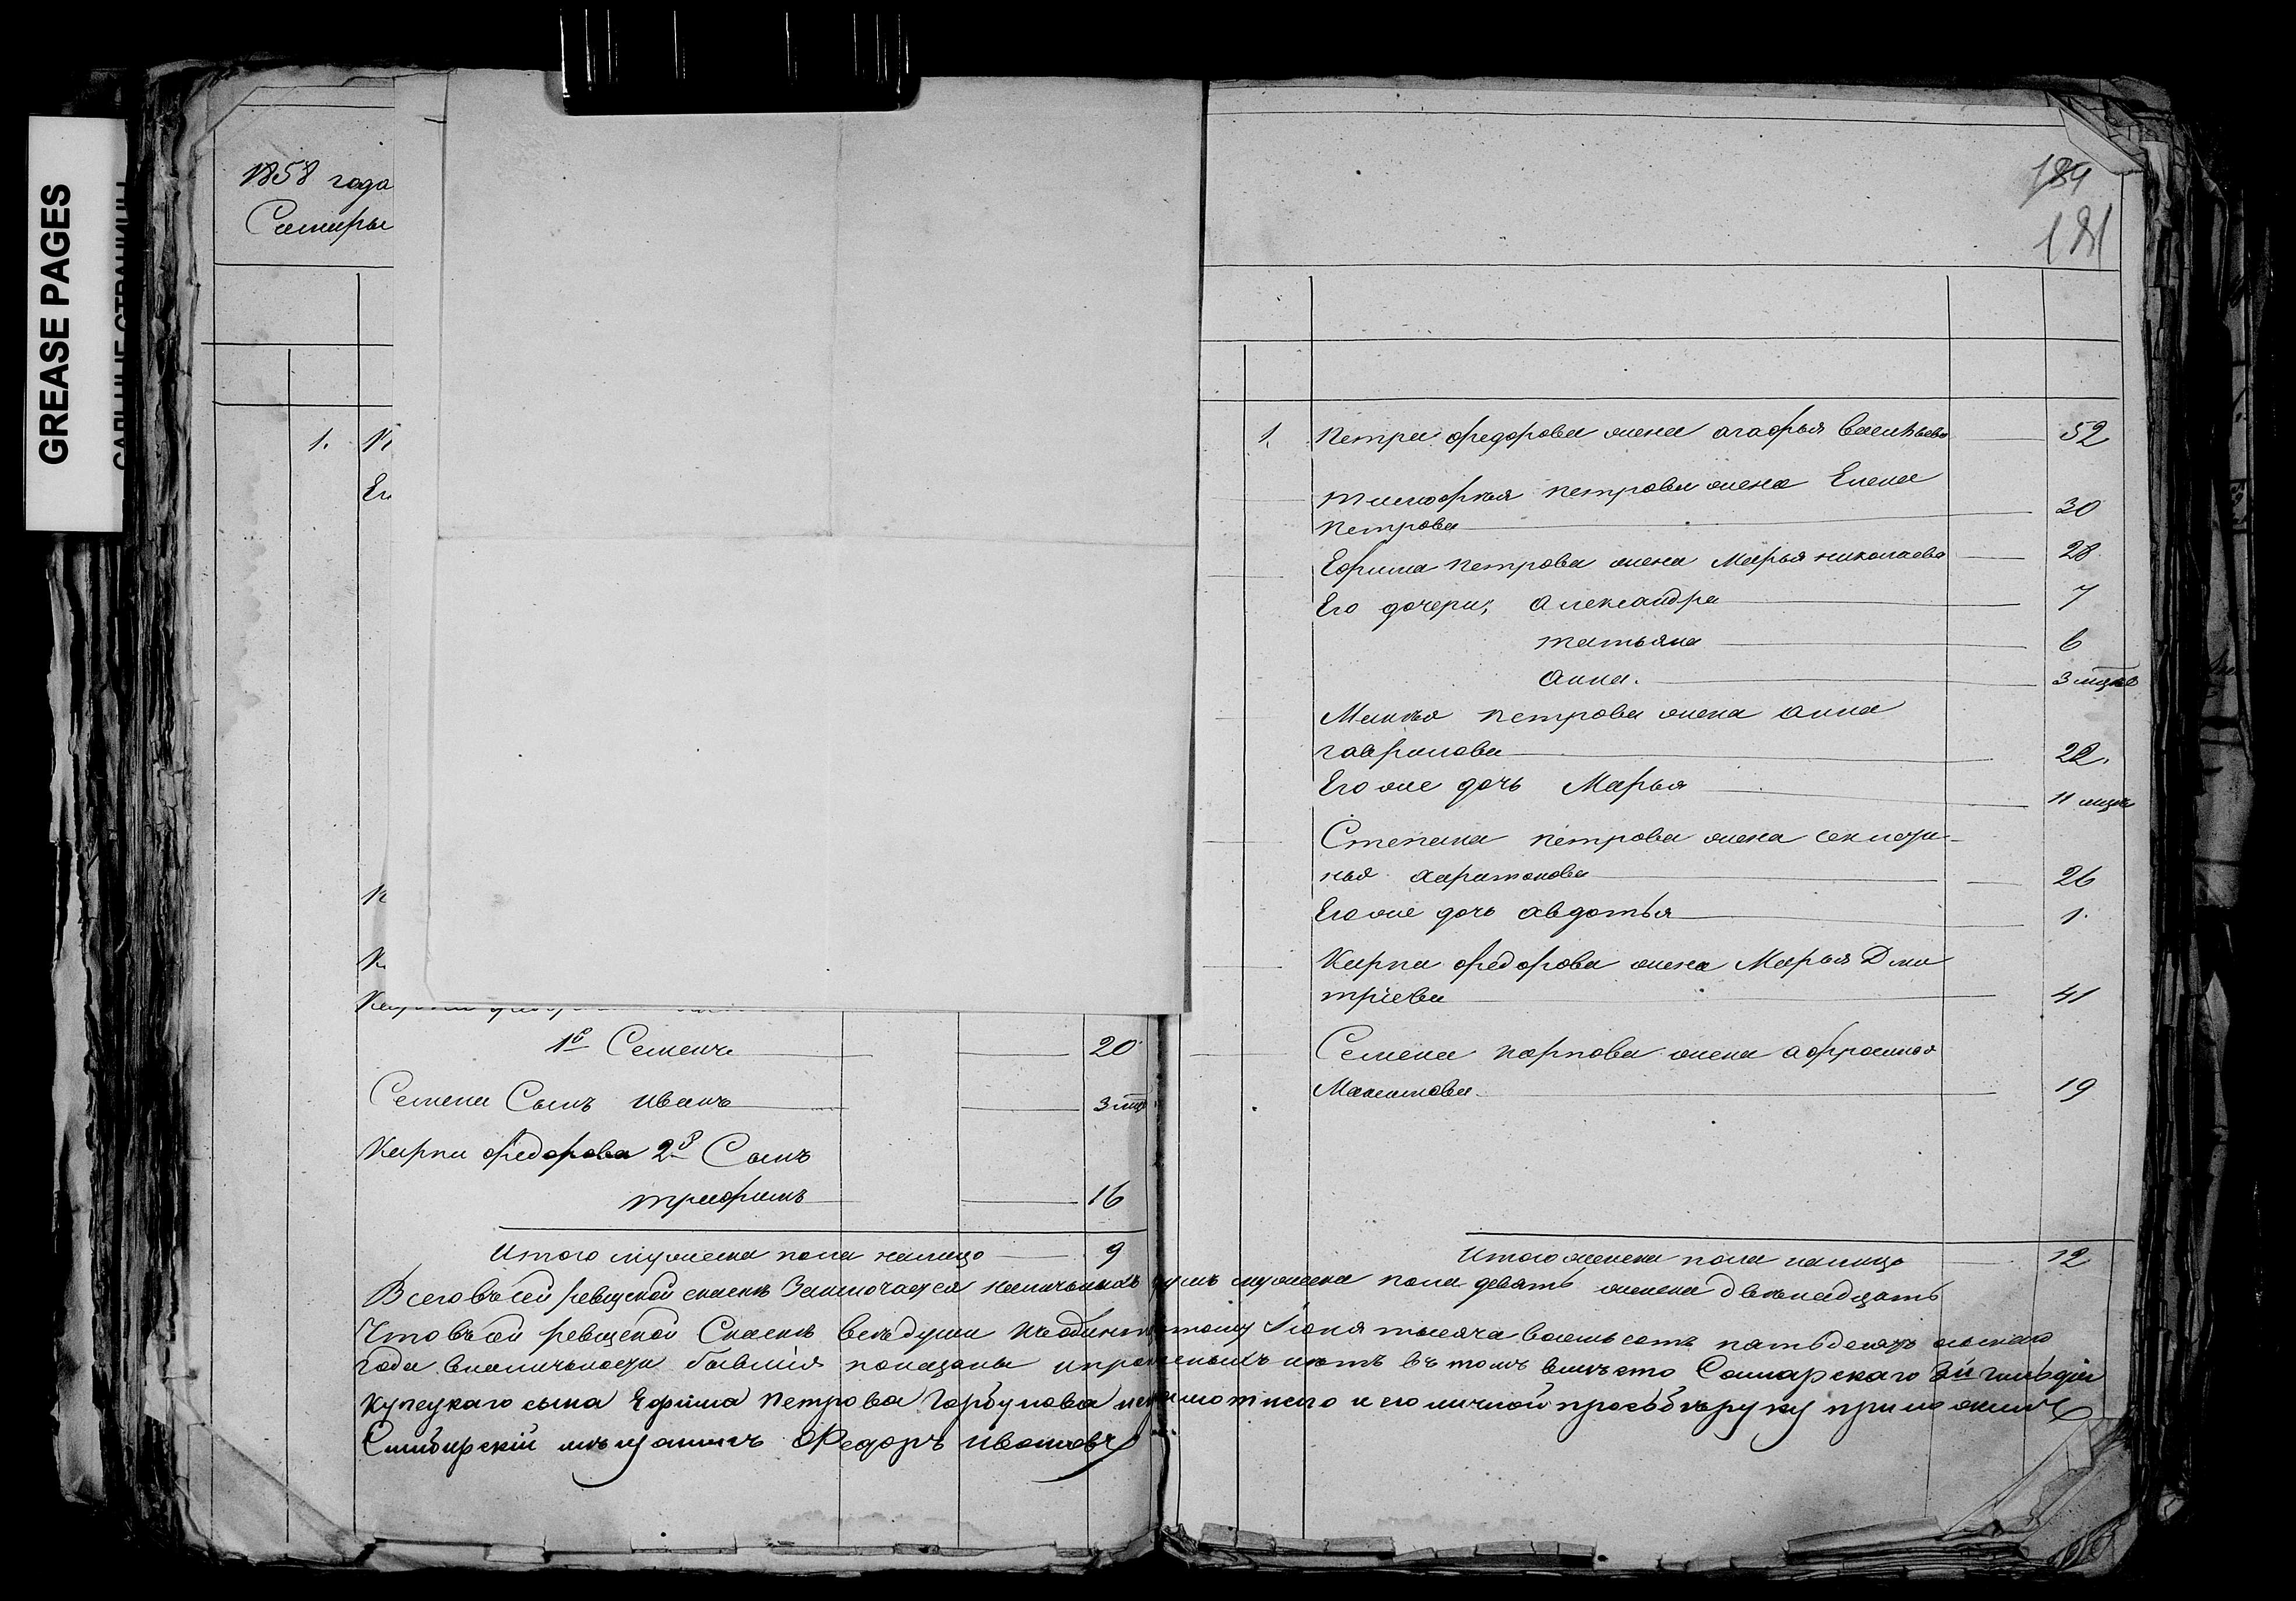 GREASE PAGES
1858 года
Самары
1.
20
1й Семенъ
Семена Сынъ иванъ 3 мца
Карпа федорова 2й Сынъ
трифимъ 16
Итого мужеска пола налицо 9
184
181
1. Петра федорова жена агафья василъева 52
тимофея петрова жена Елена
петрова 30
Ефима петрова жена Марья николаева 28
Его дочери; александра 7
татьяна 6
анна. 3 мцев
петрова жена анна
гаврилова 22.
Его же дочь Марья 11 мцев
Степана петрова жена
харитонова 26
Его же дочь авдотья 1.
Карпа федорова жена Марья Дми
трiева 41
Семена карпова жена
Максимова 19
Итого женска пола налицо 12
Всего въ сей ревизской сказке Заключается наличныхъ душъ мужеска пола девять женска двенадцать
Что въ сей ревизской Сказке все души къ Июня тысяча восемь сотъ пятьдесятъ осьмаго
года вналичности бывшiя показаны и нетъ въ томъ вместо Самарскаго 3й гильдiи
купецкаго сына Ефима Петрова Горбунова неграмотнаго и его личной прозьбе руку приложилъ
Симбирскiй мещанинъ Федоръ Ивановъ